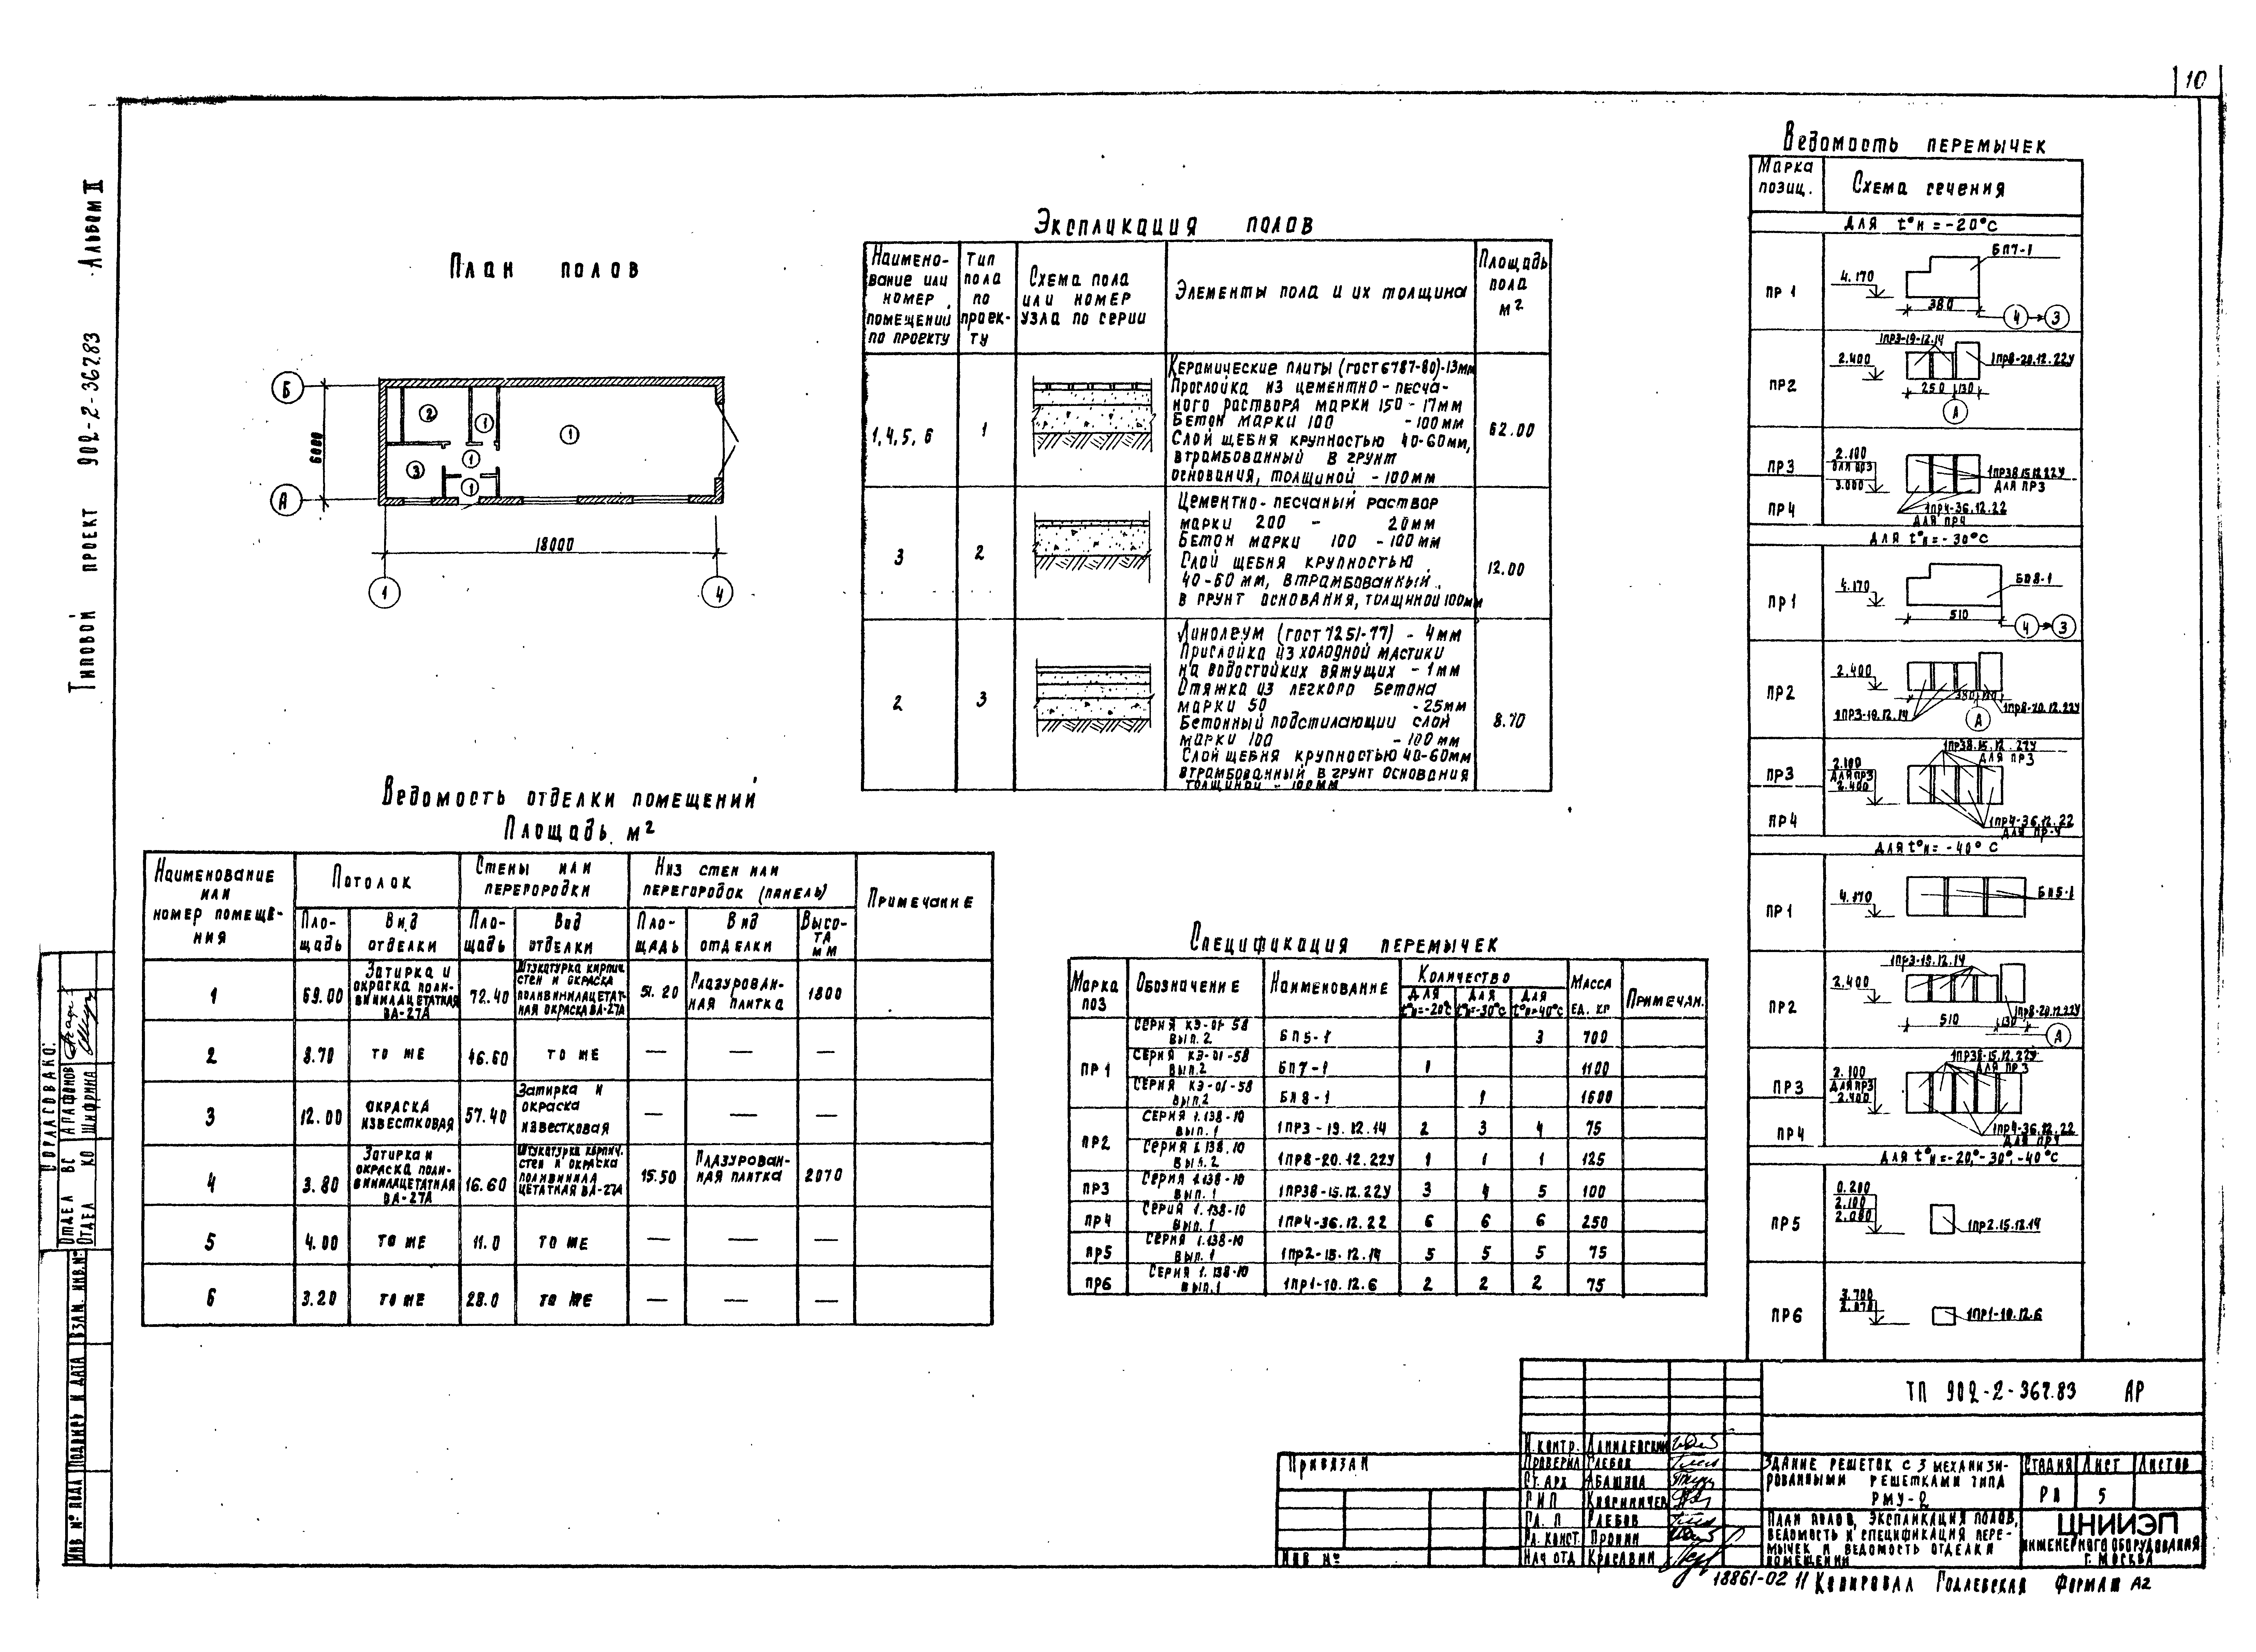 10
Альбом II
Типовой проект 902-2-367.83
План полов
Б
А
6000
18000
1
4
2
1
1
3
1
1
Экспликация полов
Наимено-
вание или
номер
помещений
по проекту
Тип
пола
по
проек-
ту
Схема пола
или номер
узла по серии
Элементы пола и их толщина
Площадь
пола
м2
1,4,5,6
1
Керамические плиты (гост 6787-80)-13мм
Прослойка из цементно-песча-
ного раствора марки 150 - 17мм
Бетон марки 100 - 100мм
Слой щебня крупностью 40-60мм,
втрамбованный в грунт
основания, толщиной - 100мм
62.00
3
2
Цементно-песчаный раствор
марки 200 - 20мм
Бетон марки 100 - 100мм
Слой щебня крупностью
40-60 мм, втрамбованный
в грунт основания, толщиной 100мм
12.00
2
3
Линолеум (гост 7251-77) - 4мм
Прислойка из холодной мастики
на водостойких вяжущих - 1мм
Стяжка из легкого бетона
марки 50 - 25мм
Бетонный подстилающий слой
марки 100 - 100мм
Слой щебня крупностью 40-60мм
втрамбованный в грунт основания
толщиной - 100мм
8.70
Ведомость отделки помещений
Площадь м2
Наименование
или
номер помеще-
ния
Потолок
Стены или
перегородки
Низ стен или
перегородок (панель)
Примечание
Пло-
щадь
Вид
отделки
Пло-
щадь
Вид
отделки
Пло-
щадь
Вид
отделки
Высо-
та
мм
1
69.00
Затирка и
окраска поли-
винилацетатная
ВА-27А
72.40
Штукатурка кирпич.
стен и окраска
поливинилацетат-
ная окраска ВА-27А
51.20
Глазурован-
ная плитка
1800
2
8.70
то же
46.60
то же
—
—
—
3
12.00
окраска
известковая
57.40
Затирка и
окраска
известковая
—
—
—
4
3.80
Затирка и
окраска поли-
винилацетатная
ВА-27А
16.60
Штукатурка кирпич.
стен и окраска
поливинила
цетатная ВА-27А
15.50
Глазурован-
ная плитка
2070
5
4.00
то же
11.0
то же
—
—
—
6
3.20
то же
28.0
то же
—
—
—
Спецификация перемычек
Марка
поз
Обозначение
Наименование
Количество
для
t°н=-20°С
для
t°н=-30°С
для
t°н=-40°С
Масса
ед. кг
Примечан.
ПР1
Серия КЭ-01-58
вып.2
БП5-1
3
700
Серия КЭ-01-58
вып.2
БП7-1
1
1100
Серия КЭ-01-58
вып.2
БП8-1
1
1600
ПР2
Серия 1.138-10
вып.1
1ПР3-19.12.14
2 3 4 75
Серия 1.138.10
вып.2
1ПР8-20.12.22У
1 1 1 125
ПР3
Серия 1.138-10
вып.1
1ПР38-15.12.22У
3 4 5 100
ПР4
Серия 1.138-10
вып.1
1ПР4-36.12.22
6 6 6 250
ПР5
Серия 1.138-10
вып.1
1ПР2-15.12.14
5 5 5 75
ПР6
Серия 1.138-10
вып.1
1ПР1-10.12.6
2 2 2 75
Ведомость перемычек
Марка
позиц.
Схема сечения
Для t°н=-20°С
ПР1
4.170
БП7-1
380
4
3
ПР2
2.400
1ПР3-19-12.14
1ПР8-20.12.22У
250
130
А
ПР3
ПР4
2.100
для ПР3
3.000
1ПР38.15.12.22У
для ПР3
1ПР4-36.12.22
для ПР4
Для t°н=-30°С
ПР1
4.170
БП8-1
510
4
3
ПР2
2.400
380
1ПР3-19.12.14
1ПР8-20.12.22У
А
ПР3
ПР4
2.100
для ПР3
2.400
1ПР38.15.12.22У
для ПР3
1ПР4-36.12.22
для ПР-4
Для t°н=-40°С
ПР1
4.170
БП5-1
ПР2
2.400
1ПР3-19.12.14
1ПР8-20.12.22У
510
130
А
ПР3
ПР4
2.100
для ПР3
2.400
1ПР38-15.12.22У
для ПР3
1ПР4-36.12.22
для ПР4
Для t°н=-20,°-30°,-40°С
ПР5
0.200
2.100
2.080
1ПР2.15.12.14
ПР6
3.700
1ПР1-10.12.6
ТП 902-2-367.83 АР
Привязан
Инв №
Н.контр. Данилевский
Проверил Глебов
Ст. арх Абашина
ГИП
Гл. п Глебов
Гл. конст. Пронин
Нач отд Красавин
Здание решеток с 3 механизи-
рованными решетками типа
РМУ-2
Стадия Лист Листов
РП 5
План полов, экспликация полов,
ведомость и спецификация пере-
мычек и ведомость отделки
помещений
ЦНИИЭП
инженерного оборудования
г. Москва
18861-02 11 Копировал Годлевская Формат А2
Согласовано:
Отдел ВС Агафонов
Отдел КО Шифрина
Взам. инв.№
Подпись и дата
Инв № подл